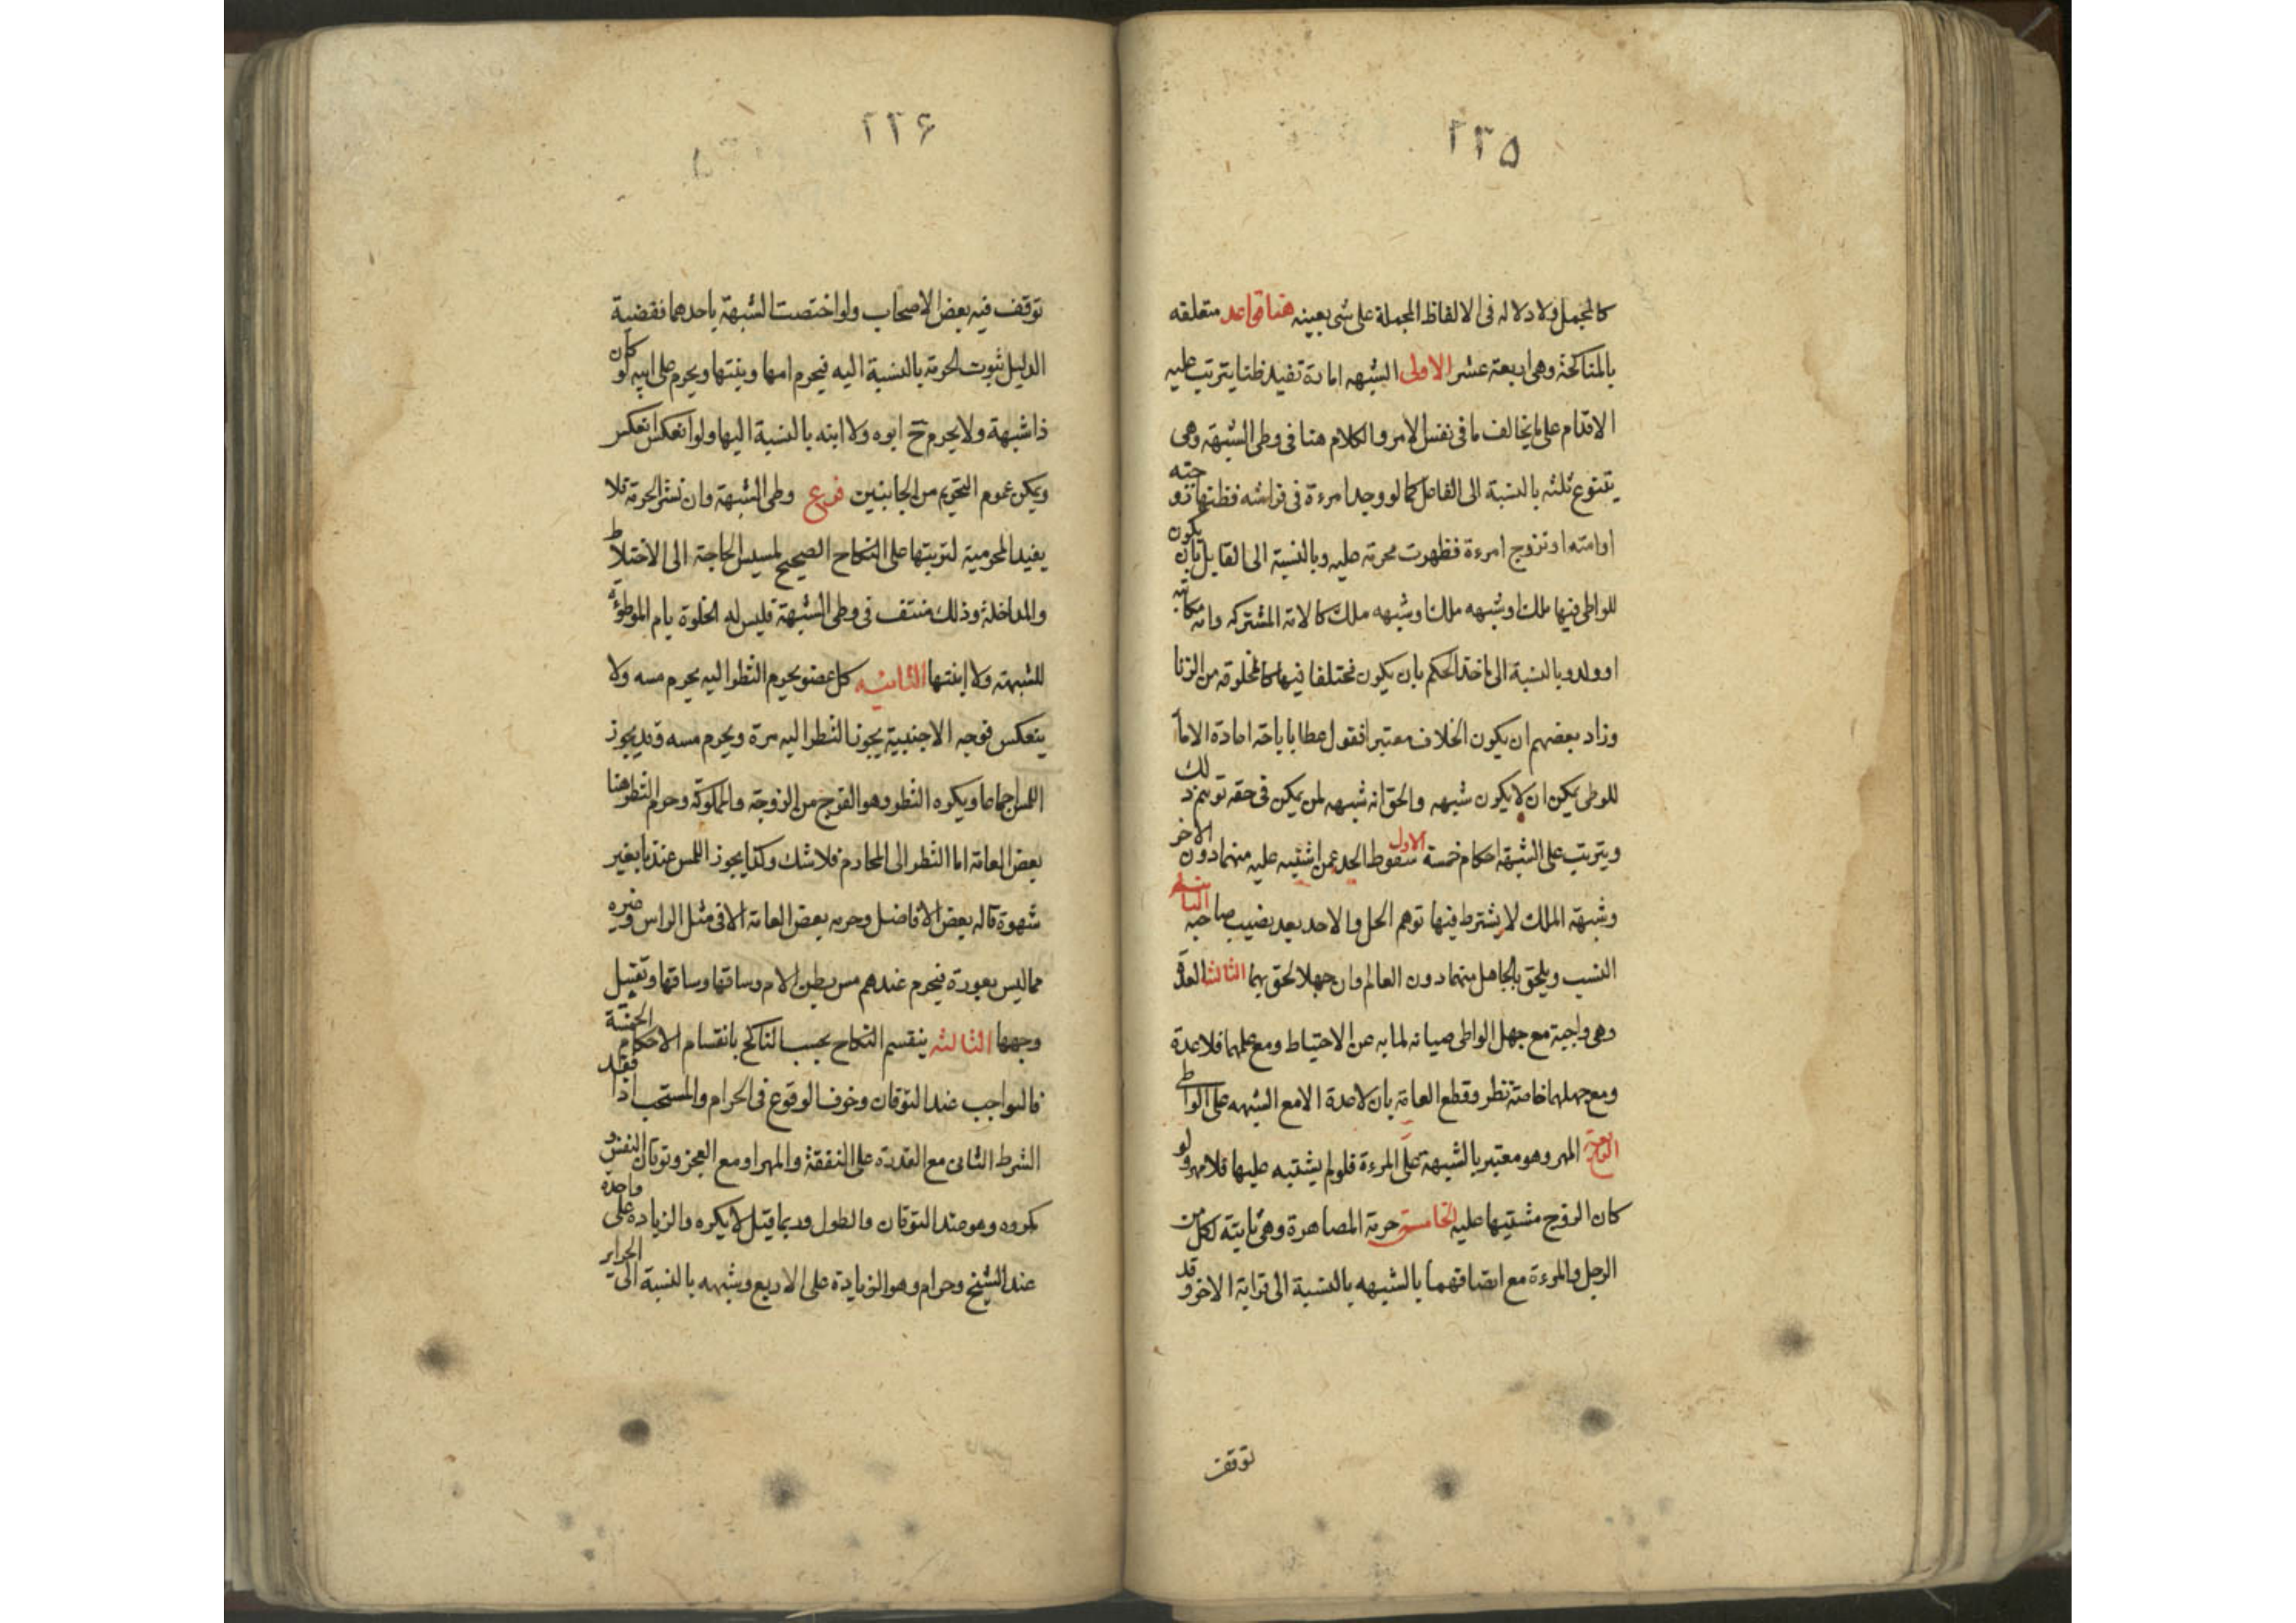 ٢٢٥
كالمجمل ولا دلالة فى الالفاظ المجملة على شى بعينه هنا قواعد متعلقه
بالمناكحة وهى اربعة عشر الاولى الشبهه امارة تفيد ظنا يترتب عليه
الاقدام على ما يخالف ما فى نفس الامر والكلام هنا فى وطى الشبهة وهى
يتنوع ثلثه بالنسبة الى الفاعل كما لو وجد امرءة فى فراشه فظنها زوجته
او امته او تزوج امرءة فظهرت محرمة عليه وبالنسبة الى القابل بان يكون
للواطى فيها ملك او شبهه ملك وشبهه ملك كالامة المشتركه وامة مكاتبه
او ولده وبالنسبة الى ماخذ الحكم بان يكون مختلفا فيها كالمخلوقه من الزنا
وزاد بعضهم ان يكون الخلاف معتبرا فقول عطا باباحة اعارة الاما
للوطى يمكن ان لا يكون شبهه والحق انه شبهه لمن يمكن فى حقه توهم ذلك
ويترتب على الشبهة احكام خمسة الاول سقوط الحد عمن اشتبه عليه منهما دون الاخر
وشبهة الملك لا يشترط فيها توهم الحل والا حد بعد نصيب صاحبه الثانية
النسب ويلحق بالجاهل منهما دون العالم وان جهلا لحق بهما الثالث العدة
وهى واجبة مع جهل الواطى صيانه لمايه عن الاختياط ومع علمهما فلا عدة
ومع جهلها خاصة نظر وقطع العامة بان لا عدة الا مع الشبهه على الواطى
الرابعة المهر وهو معتبر بالشبهة على المرءة فلو لم يشتبه عليها فلا مهر ولو
كان الزوج مشتبها عليه الخامسة حرمة المصاهرة وهى ثابتة لكل من
الرجل والمرءة مع اتصافهما بالشبهه بالنسبة الى قرابة الاخر وقد
توقف
٢٢۶
توقف فيه بعض الاصحاب ولو اختصت الشبهة باحدهما فقضية
الدليل ثبوت الحرمة بالنسبة اليه فيحرم امها وبنتها ويحرم على ابيه لو كان
ذا شبهة ولا يحرم ح ابوه ولا ابنه بالنسبة اليها ولو انعكس انعكس
ويمكن عموم التحريم من الجانبين فرع وطى الشبهة وان نشر الحرمة فلا
يفيد المحرمية لترتبها على النكاح الصحيح لمسيس الحاجة الى الاختلاط
والمداخلة وذلك منتف فى وطى الشبهة فليس له الخلوة بام الموطوءة
للشبهة ولا ابنتها الثانيه كل عضو يحرم النظر اليه يحرم مسه ولا
ينعكس فوجه الاجنبية يجوز النظر اليه مرة ويحرم مسه وقد يجوز
اللمس اجماعا ويكره النظر وهو الفرج من الزوجة والمملوكة وحرم النظر هنا
بعض العامة اما النظر الى المحارم فلا شك وكذا يجوز اللمس عندنا بغير
شهوة قاله بعض الافاضل وحرمه بعض العامة الا فى مثل الراس وغيره
مما ليس بعورة فيحرم عندهم مس بطن الام وساقها وساقها وتقبيل
وجهها الثالثه ينقسم النكاح بحسب الناكح بانقسام الاحكام الخمسة
فالواجب عند التوقان وخوف الوقوع فى الحرام والمستحب اذا فقد
الشرط الثانى مع القدرة على النفقة والمهر او مع العجز وتوقان النفس و
مكروه وهو عند التوقان والطول وربما قيل لا يكره والزيادة على واحدة
عند الشيخ وحرام وهو الزيادة على الاربع وشبهه بالنسبة الى الحراير